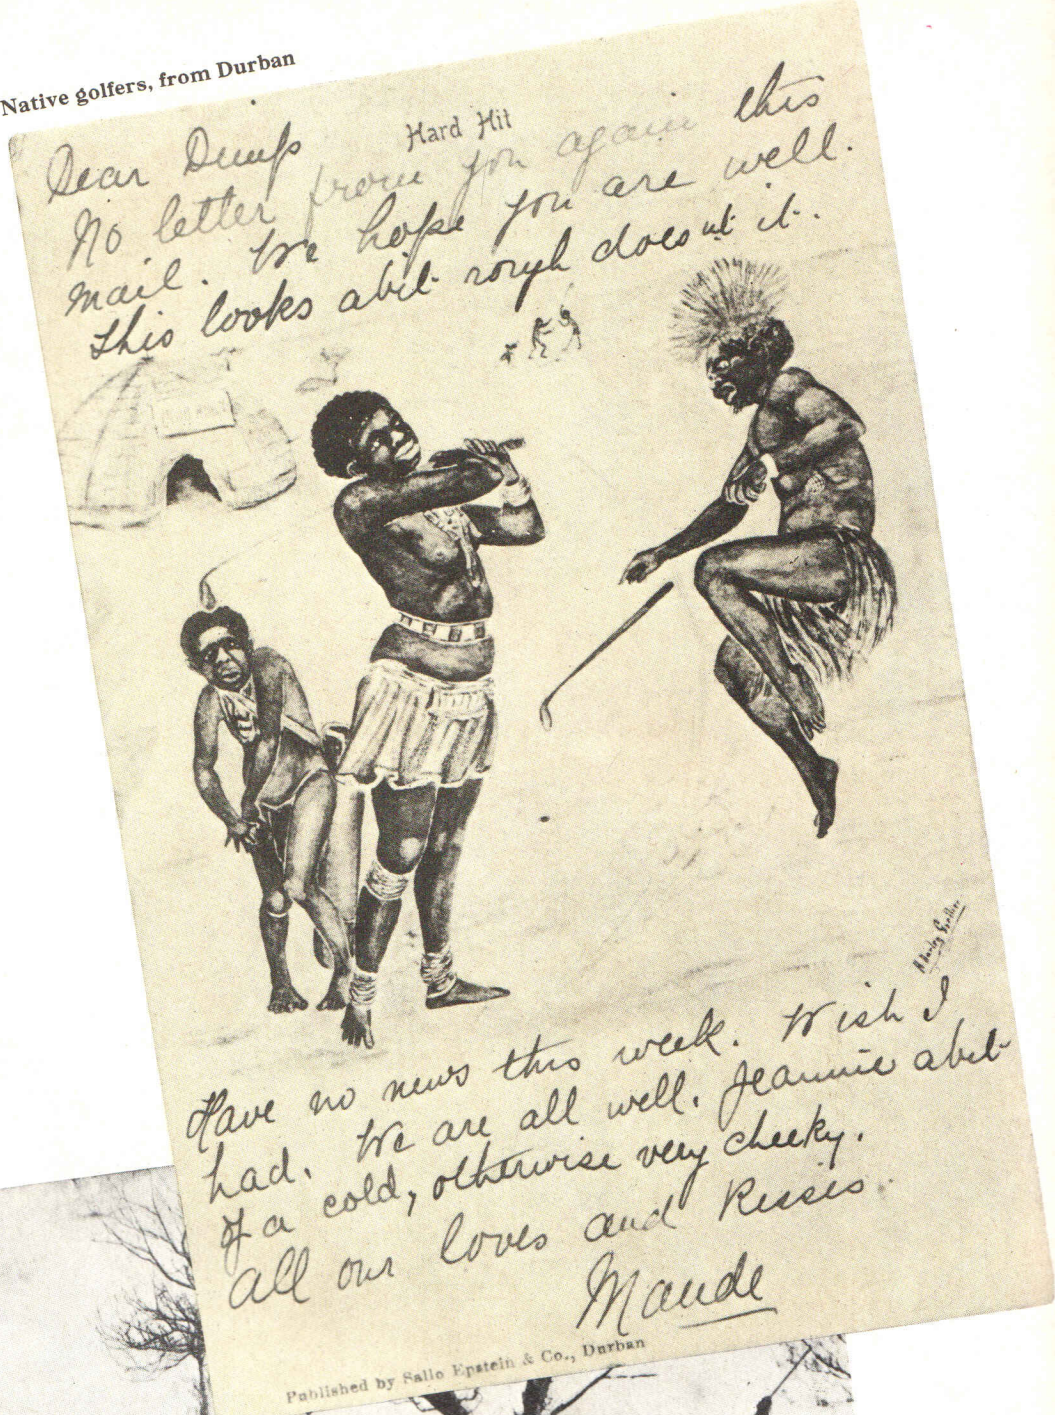 Native golfers, from Durban
Hard Hit
Dear Dimps
No letter from you again this
mail. We hope you are well.
This looks abit rough doesnt it.
Have no news this week. Wish I
had. We are all well. Jeannie abit
of a cold, otherwise very cheeky.
All our loves and Kisses.
Maude
Published by Sallo Epstein & Co., Durban